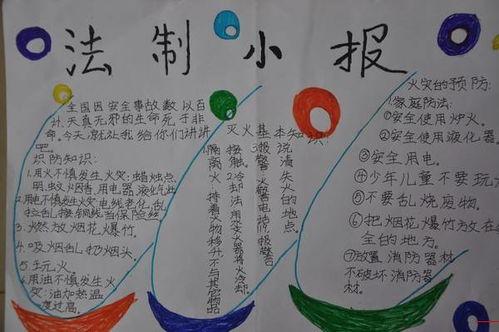 法制小报
全国因安全事故数以百
计,天真无邪的生命死于非
命。今天,就让我给你们讲讲
吧。
识防知识:
1.用火不慎发生火灾:蜡烛点
明,蚊烟香,用电器,液化气灶
2.用电不慎发生火灾电线老化,乱
拉乱接铜丝当保险丝
3.燃放烟花爆竹。
4.吸烟乱扔烟头。
5.玩火
6.用油不慎发生火
灾:油加热温
度过高。
灭火基本知识:
报警:拨火警电话
说清失火的地点
火灾的预防:
1.家庭防法:
①安全使用炉火。
②安全使用液化器。
③安全用电。
④少年儿童不要玩火
⑤不要乱烧废物。
⑥把烟花爆竹放在
全的地方。
⑦放置消防器材,
不破坏消防器
材。